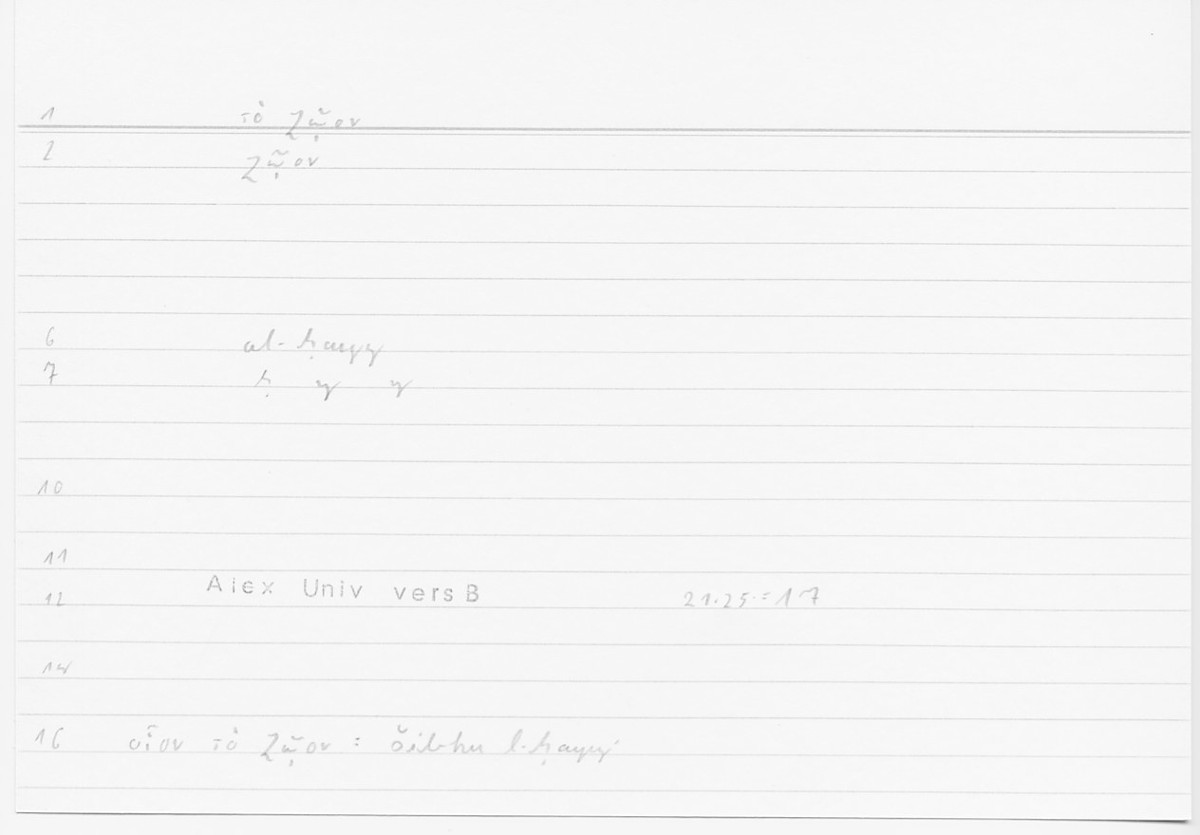 1 τὸ ζῷον
2 ζῷον
6 al-ḥayy
7 ḥ y y
10
11
12 Alex Univ vers B 21.25.=17
14
16 οἷον τὸ ζῷον : l-ḥayy